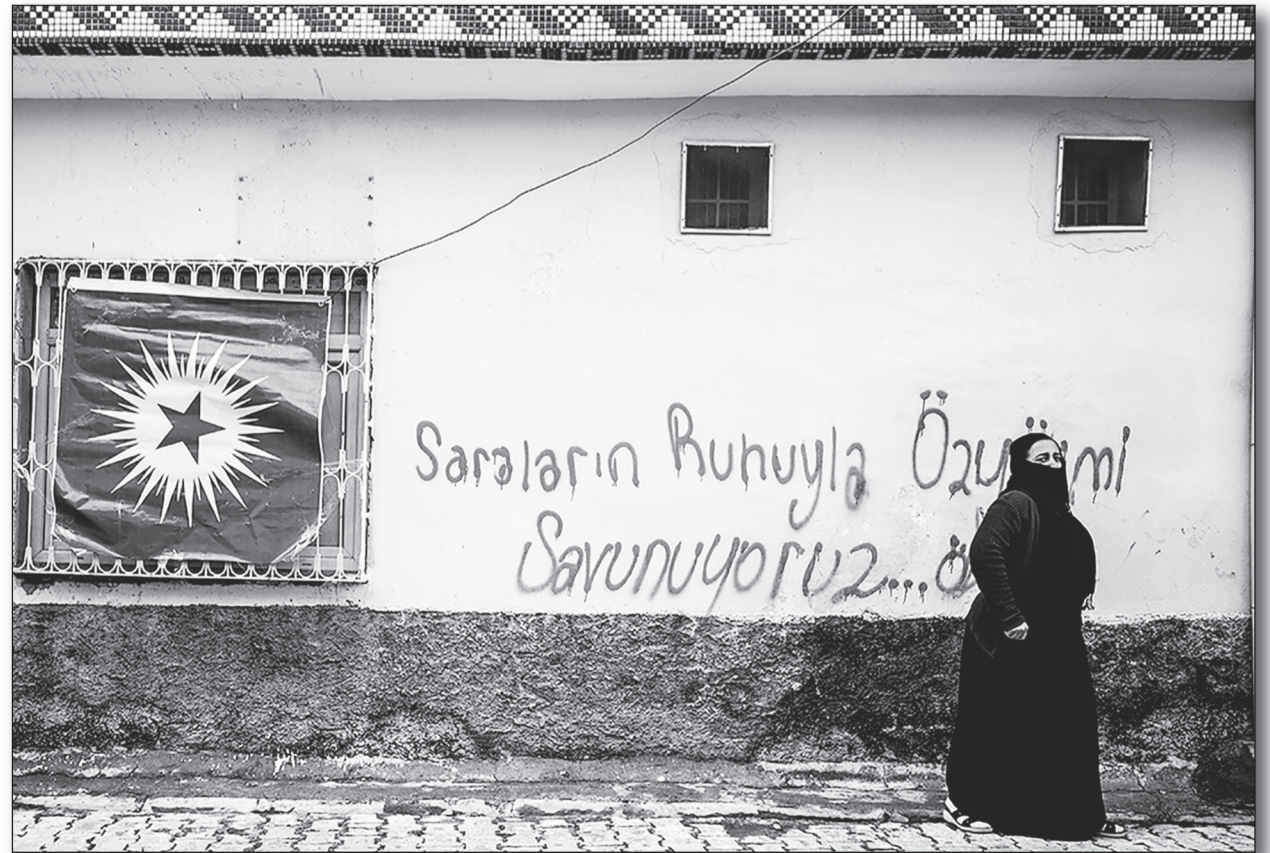 Saraların Ruhuyla
Savunuyoruz...